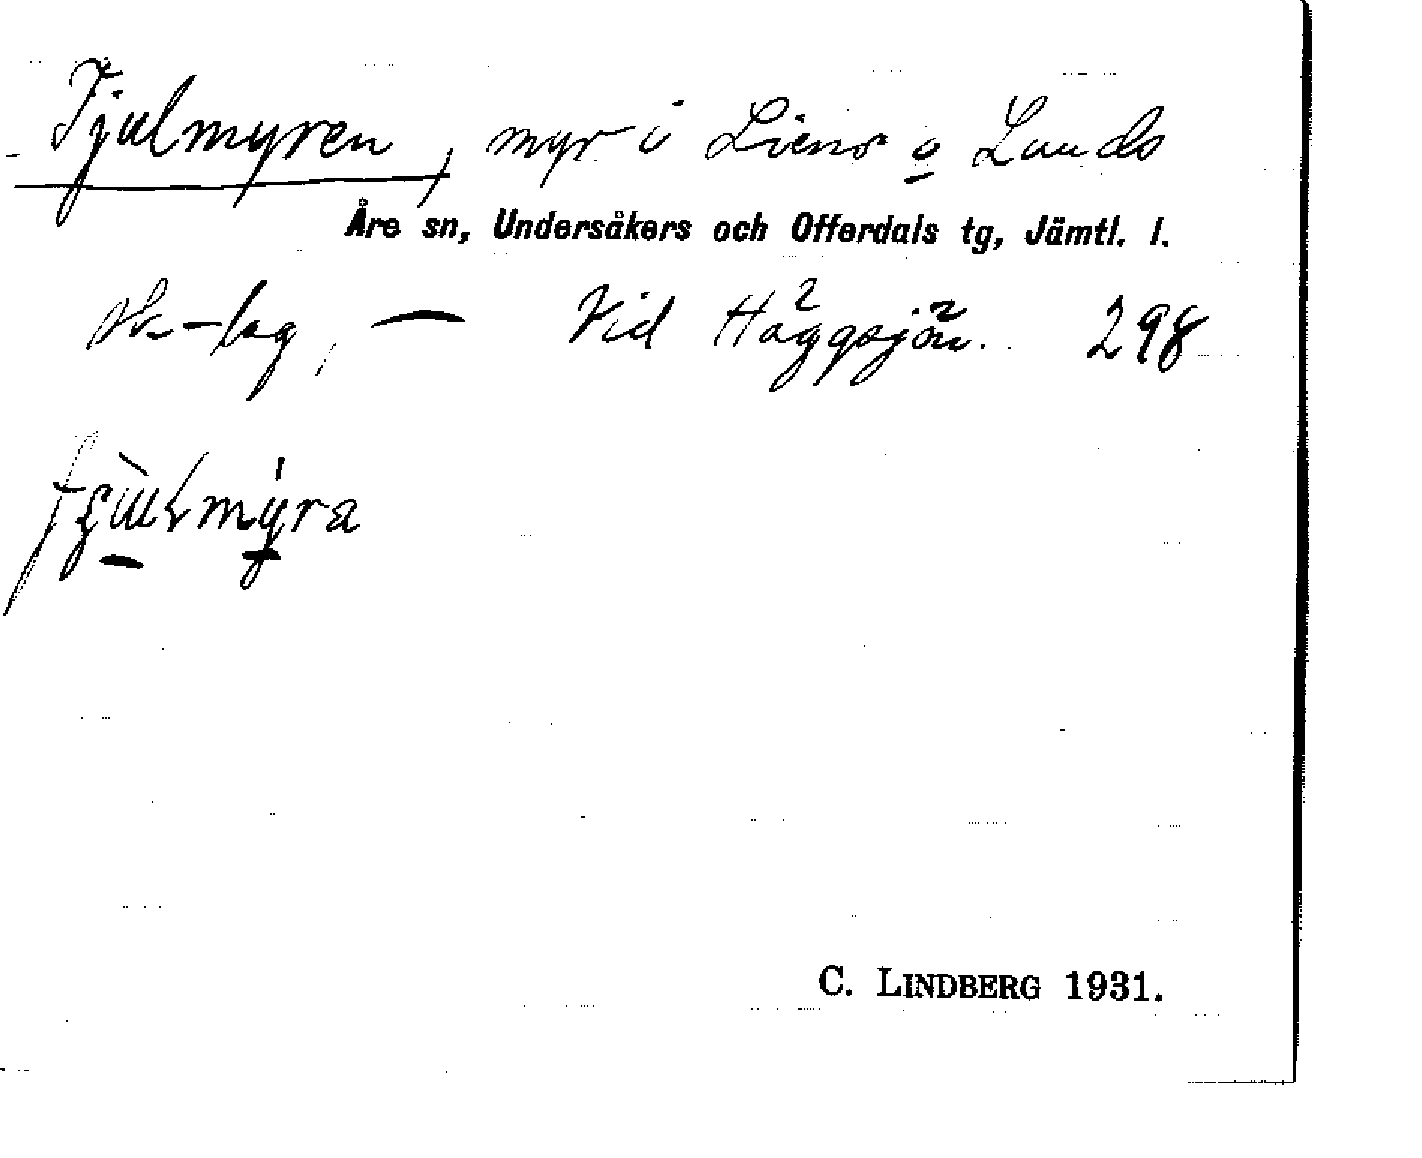 Fjulmyren, myr i Liens o Lunds
Åre sn, Undersåkers och Offerdals tg, Jämtl. l.
sk-lag, — Vid Häggsjön. 298
myra
C. LINDBERG 1931.